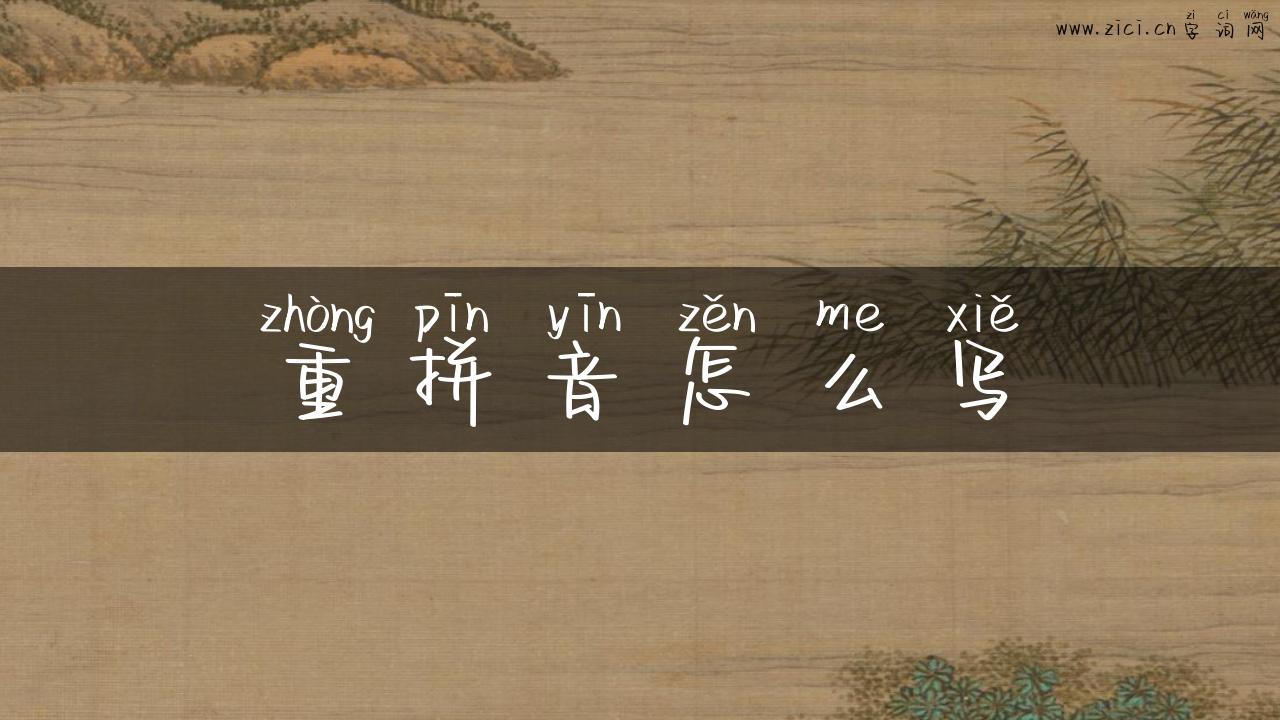 zì cí wǎng
www.zici.cn 字词网
zhòng pīn yīn zěn me xiě
重拼音怎么写